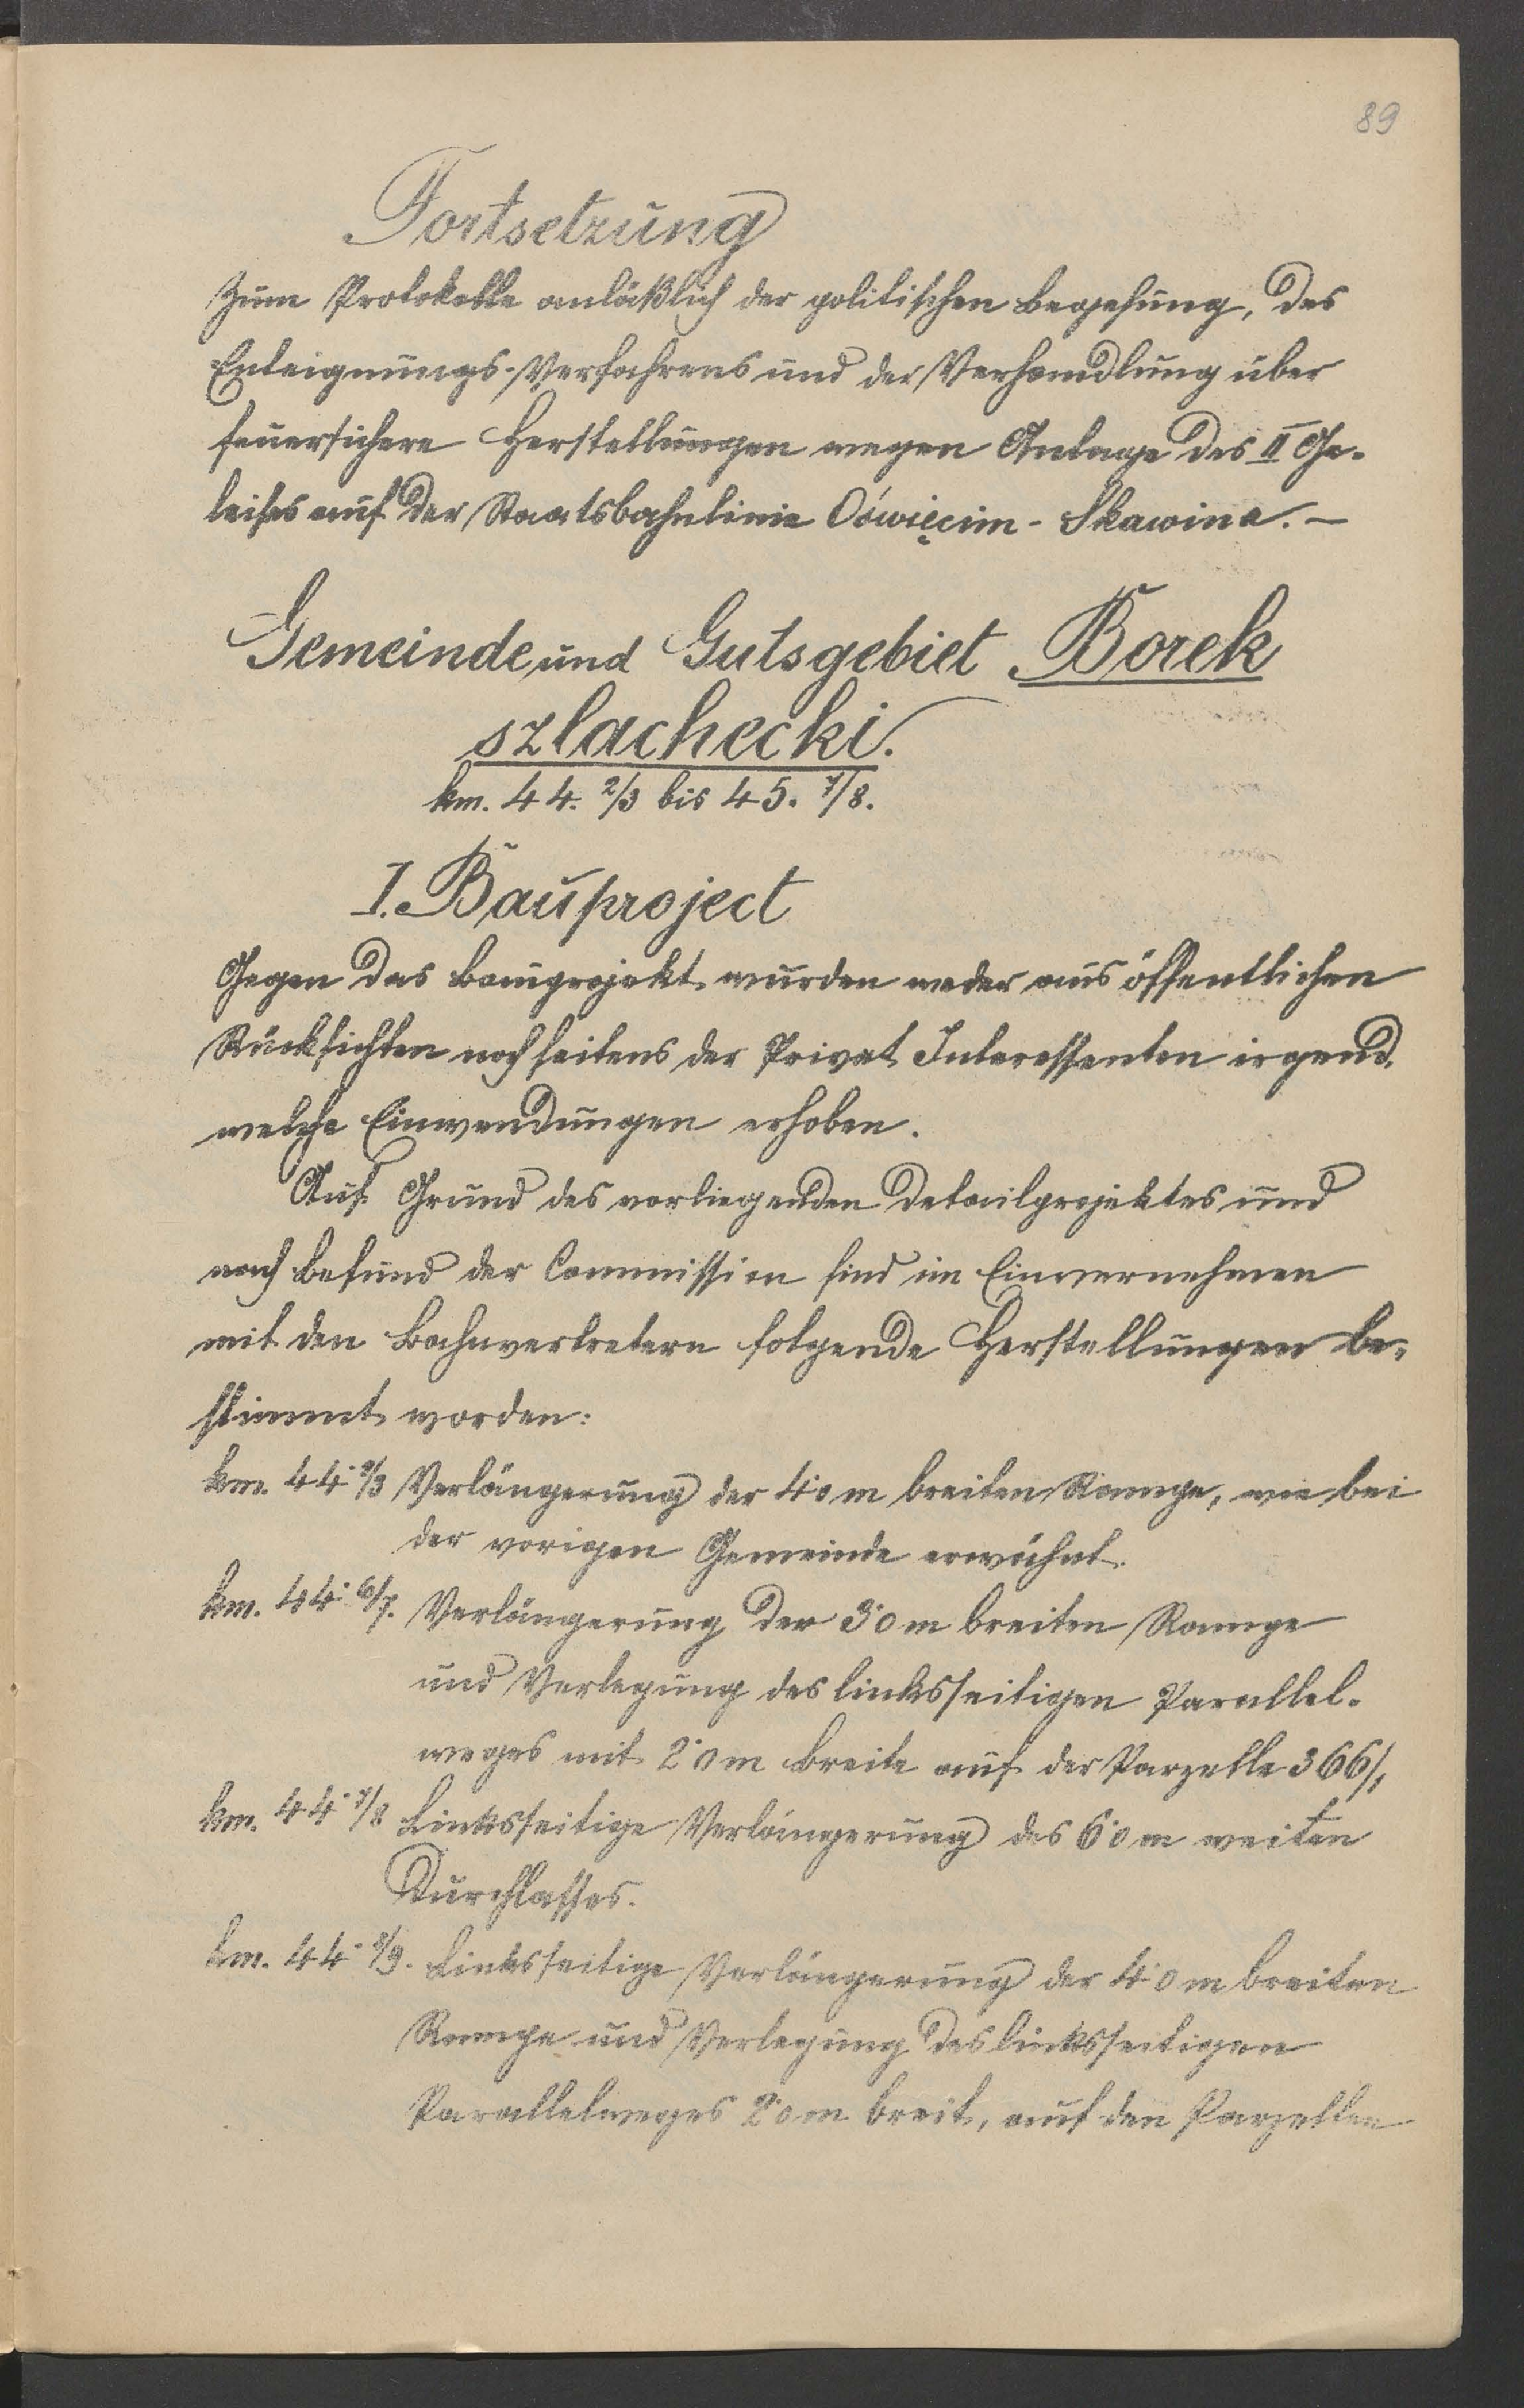 89
Fortsetzung
zum Protokolle anläßlich der politischen Begehung, des
Enteignungs-Verfahrens und der Verhandlung über
feuersichere Herstellungen wegen Anlage des II Ge-
leises auf der Staatsbahnlinie Oświęcim - Skawina. -
Gemeinde und Gutsgebiet Borek
szlachecki.
km. 44. 2/3 bis 45. 7/8.
I. Bauproject
Gegen das Bauprojekt wurden weder aus öffentlichen
Rücksichten noch seitens der Privat Interessenten irgend
welche Einwendungen erhoben.
Auf Grund des vorliegenden Detailprojektes und
nach Befund der Commission sind im Einvernehmen
mit den Bahnvertretern folgende Herstellungen be-
stimmt worden:
km. 44· 2/3 Verlängerung der 4·0 m breiten Rampe, wie bei
der vorigen Gemeinde erwähnt.
km. 44· 6/7. Verlängerung der 3·0 m breiten Rampe
und Verlegung des linksseitigen Parallel-
weges mit 2·0 m Breite auf der Parzelle 366/1
km. 44· 7/8 Linksseitige Verlängerung des 6·0 m weiten
Durchlasses.
km. 44· 8/9. Linksseitige Verlängerung der 4·0 m breiten
Rampe und Verlegung des linksseitigen
Parallelweges 2·0 m breit, auf den Parzellen